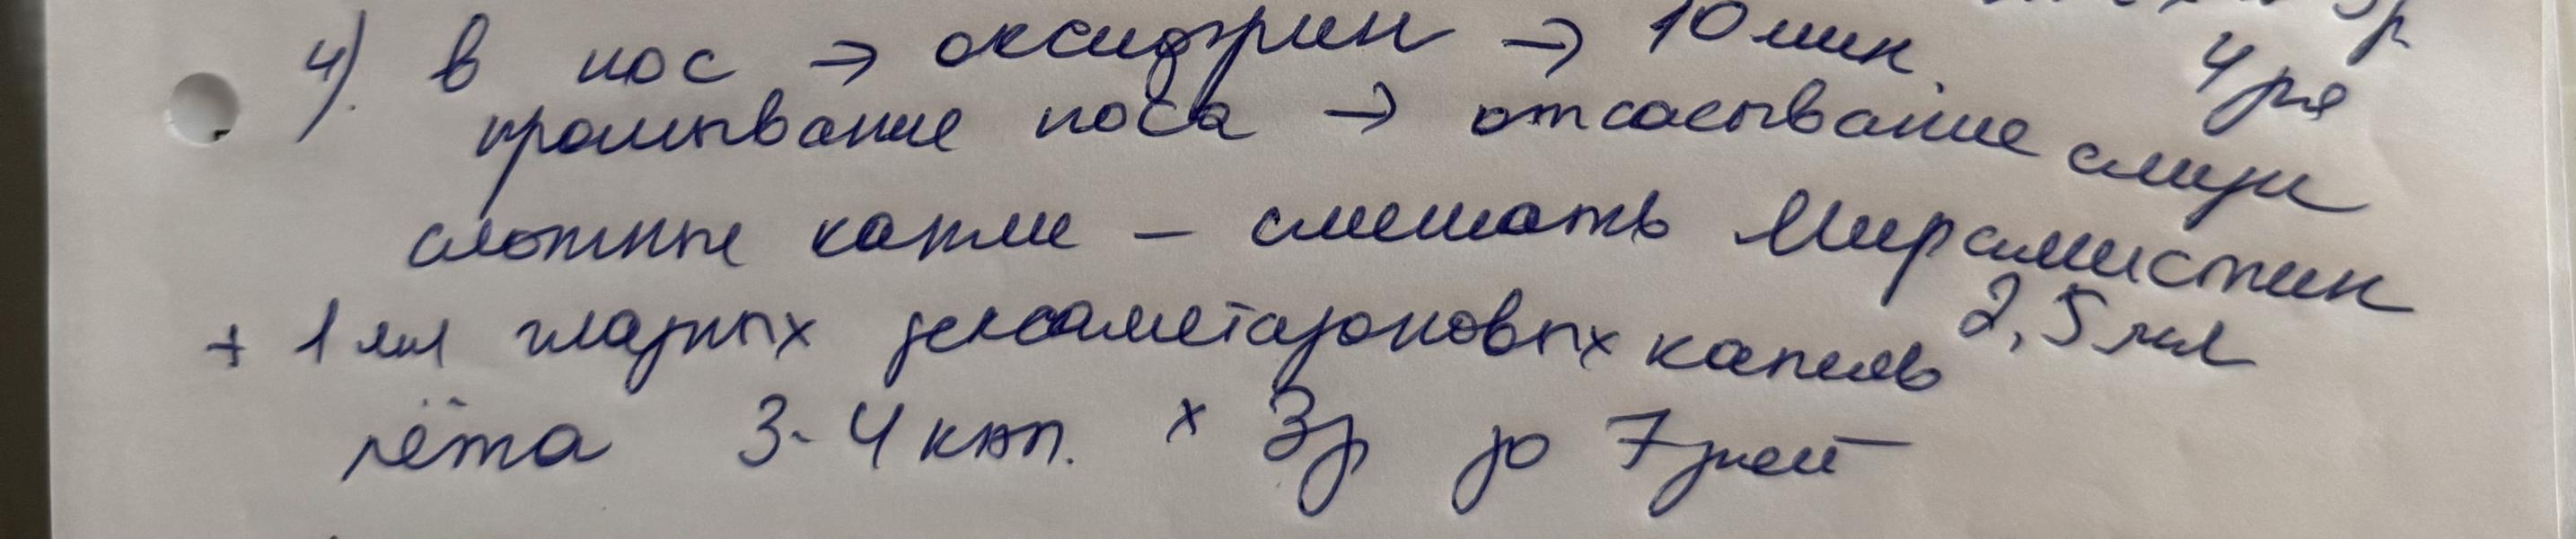 4). в нос → оксифрин → 10 мин.
промывание носа → отсасывание слизи
сложные капли – смешать Мирамистин 2,5 мл
+ 1 мл глазных дексаметазоновых капель
лёжа 3-4 кап. x 3р до 7 дней